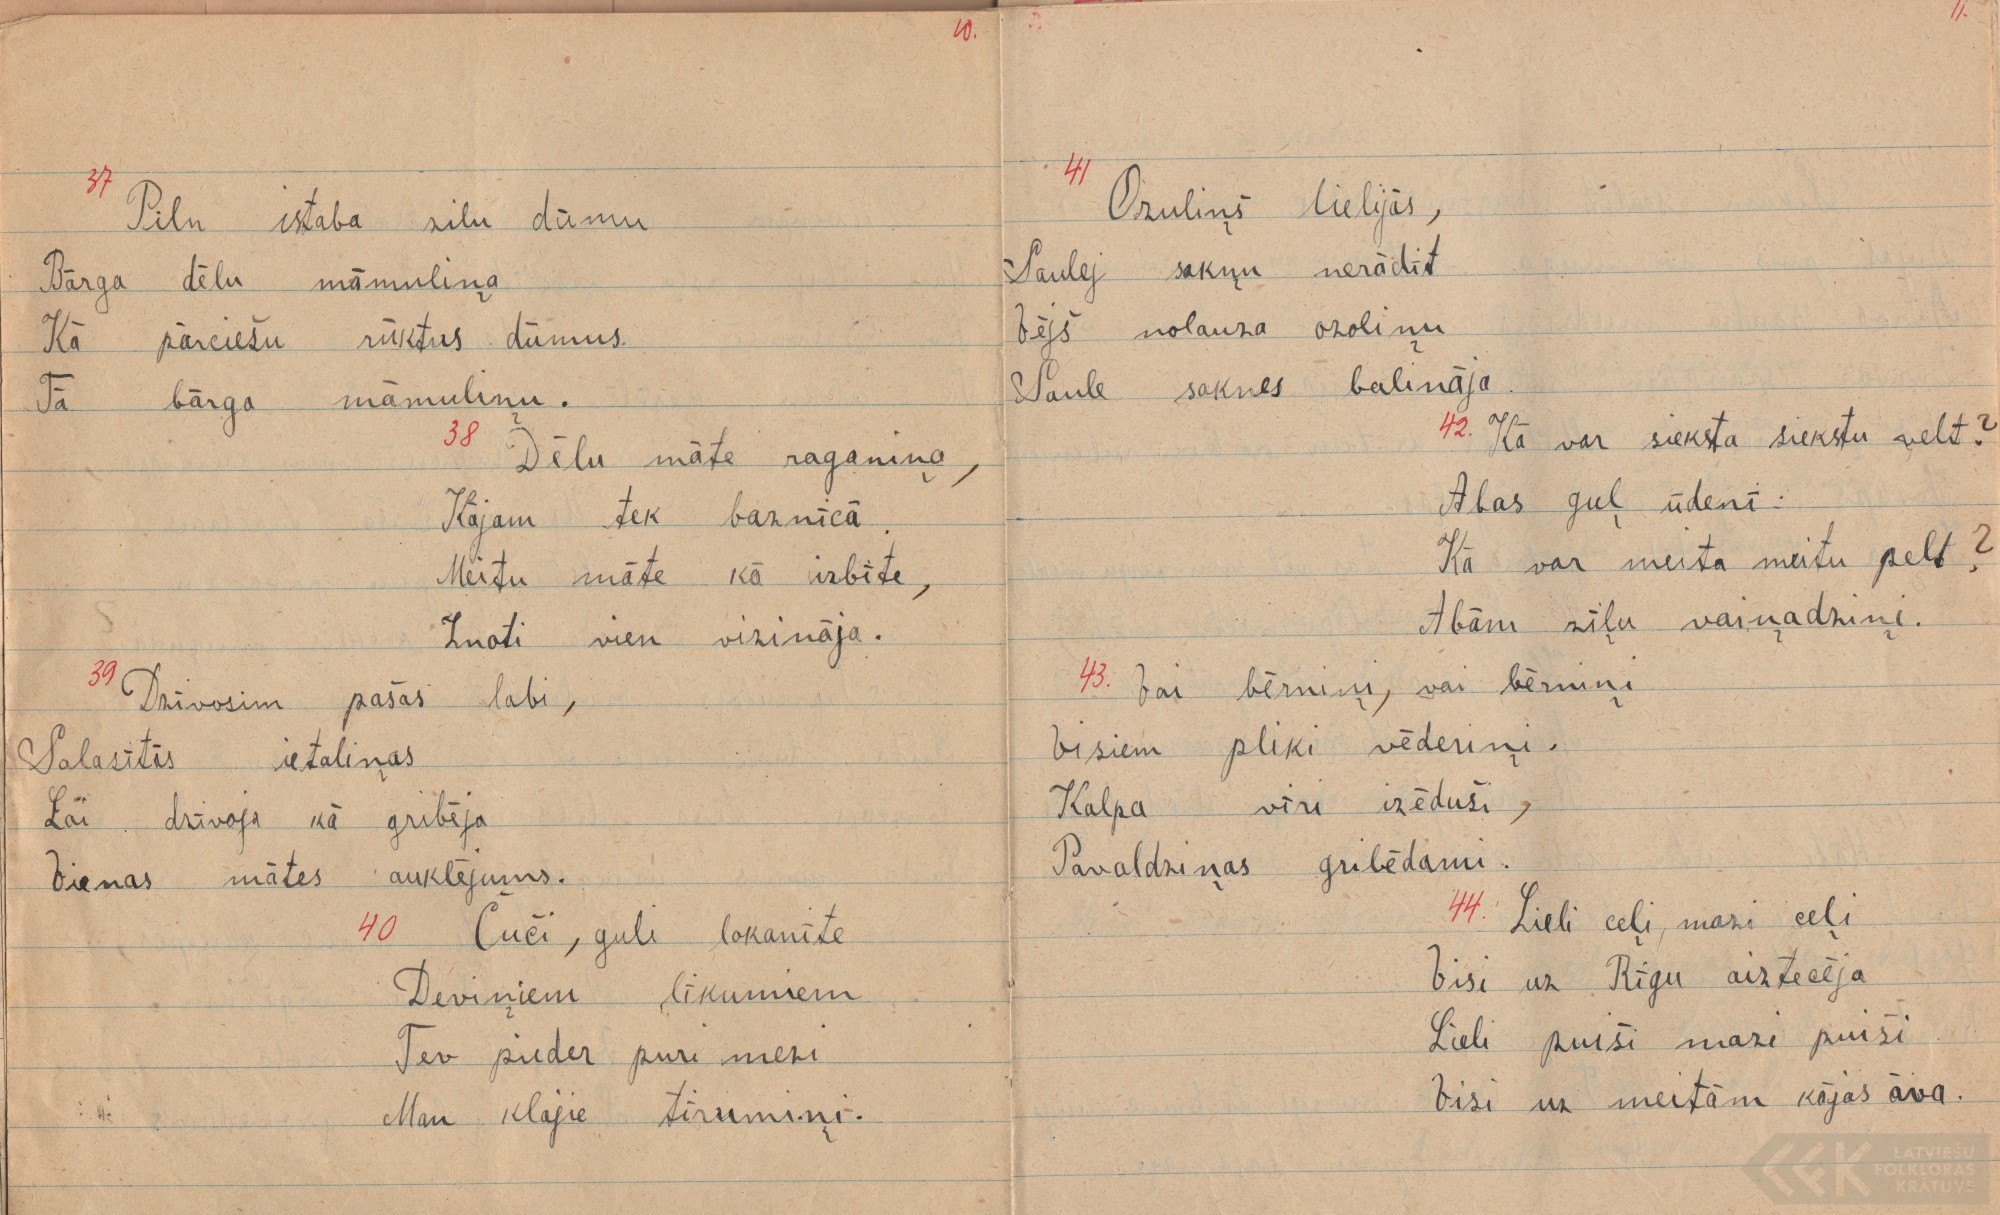 10.
37
Piln istaba zilu dūmu
Bārga dēlu māmuliņa
Kā pārciešu rūktus dūmus.
Tā bārga māmuliņu.
38
Dēlu māte raganiņa,
Kājam tek baznīcā.
Meitu māte kā irbīte,
Znoti vien vizināja.
39
Dzīvosim pašas labi,
Salasītās ietaliņas
Lai dzīvoja kā gribēja
Vienas mātes auklējums.
40
Čuči, guli lokanīte
Deviņiem līkumiem
Tev pieder puri mezi
Man klajie tīrumiņi.
11.
41
Ozuliņš lielijās,
Saulej sakņu nerādīt
Vējš nolauza ozoliņu
Saule saknes balināja.
42. Kā var sieksta siekstu velt?
Abas guļ ūdenī:
Kā var meita meitu pelt?
Abām zīļu vaiņadziņi.
43. Vai bērniņi, vai bērniņi
Visiem pliki vēderiņi.
Kalpa vīri izēduši,
Pavaldziņas gribēdami.
44. Lieli ceļi, mazi ceļi
Visi uz Rīgu aiztecēja
Lieli puiši mazi puiši
Visi uz meitām kājas āva.
LATVIEŠU
FOLKLORAS
KRĀTUVE